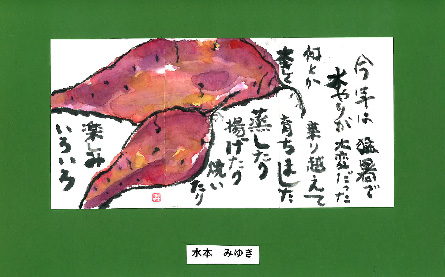 今年は 猛暑で
水やりが 大変だった
何とか 乗り越えて
育ちました
蒸したり
揚げたり
焼いたり
楽しみ
いろいろ
水本 みゆき